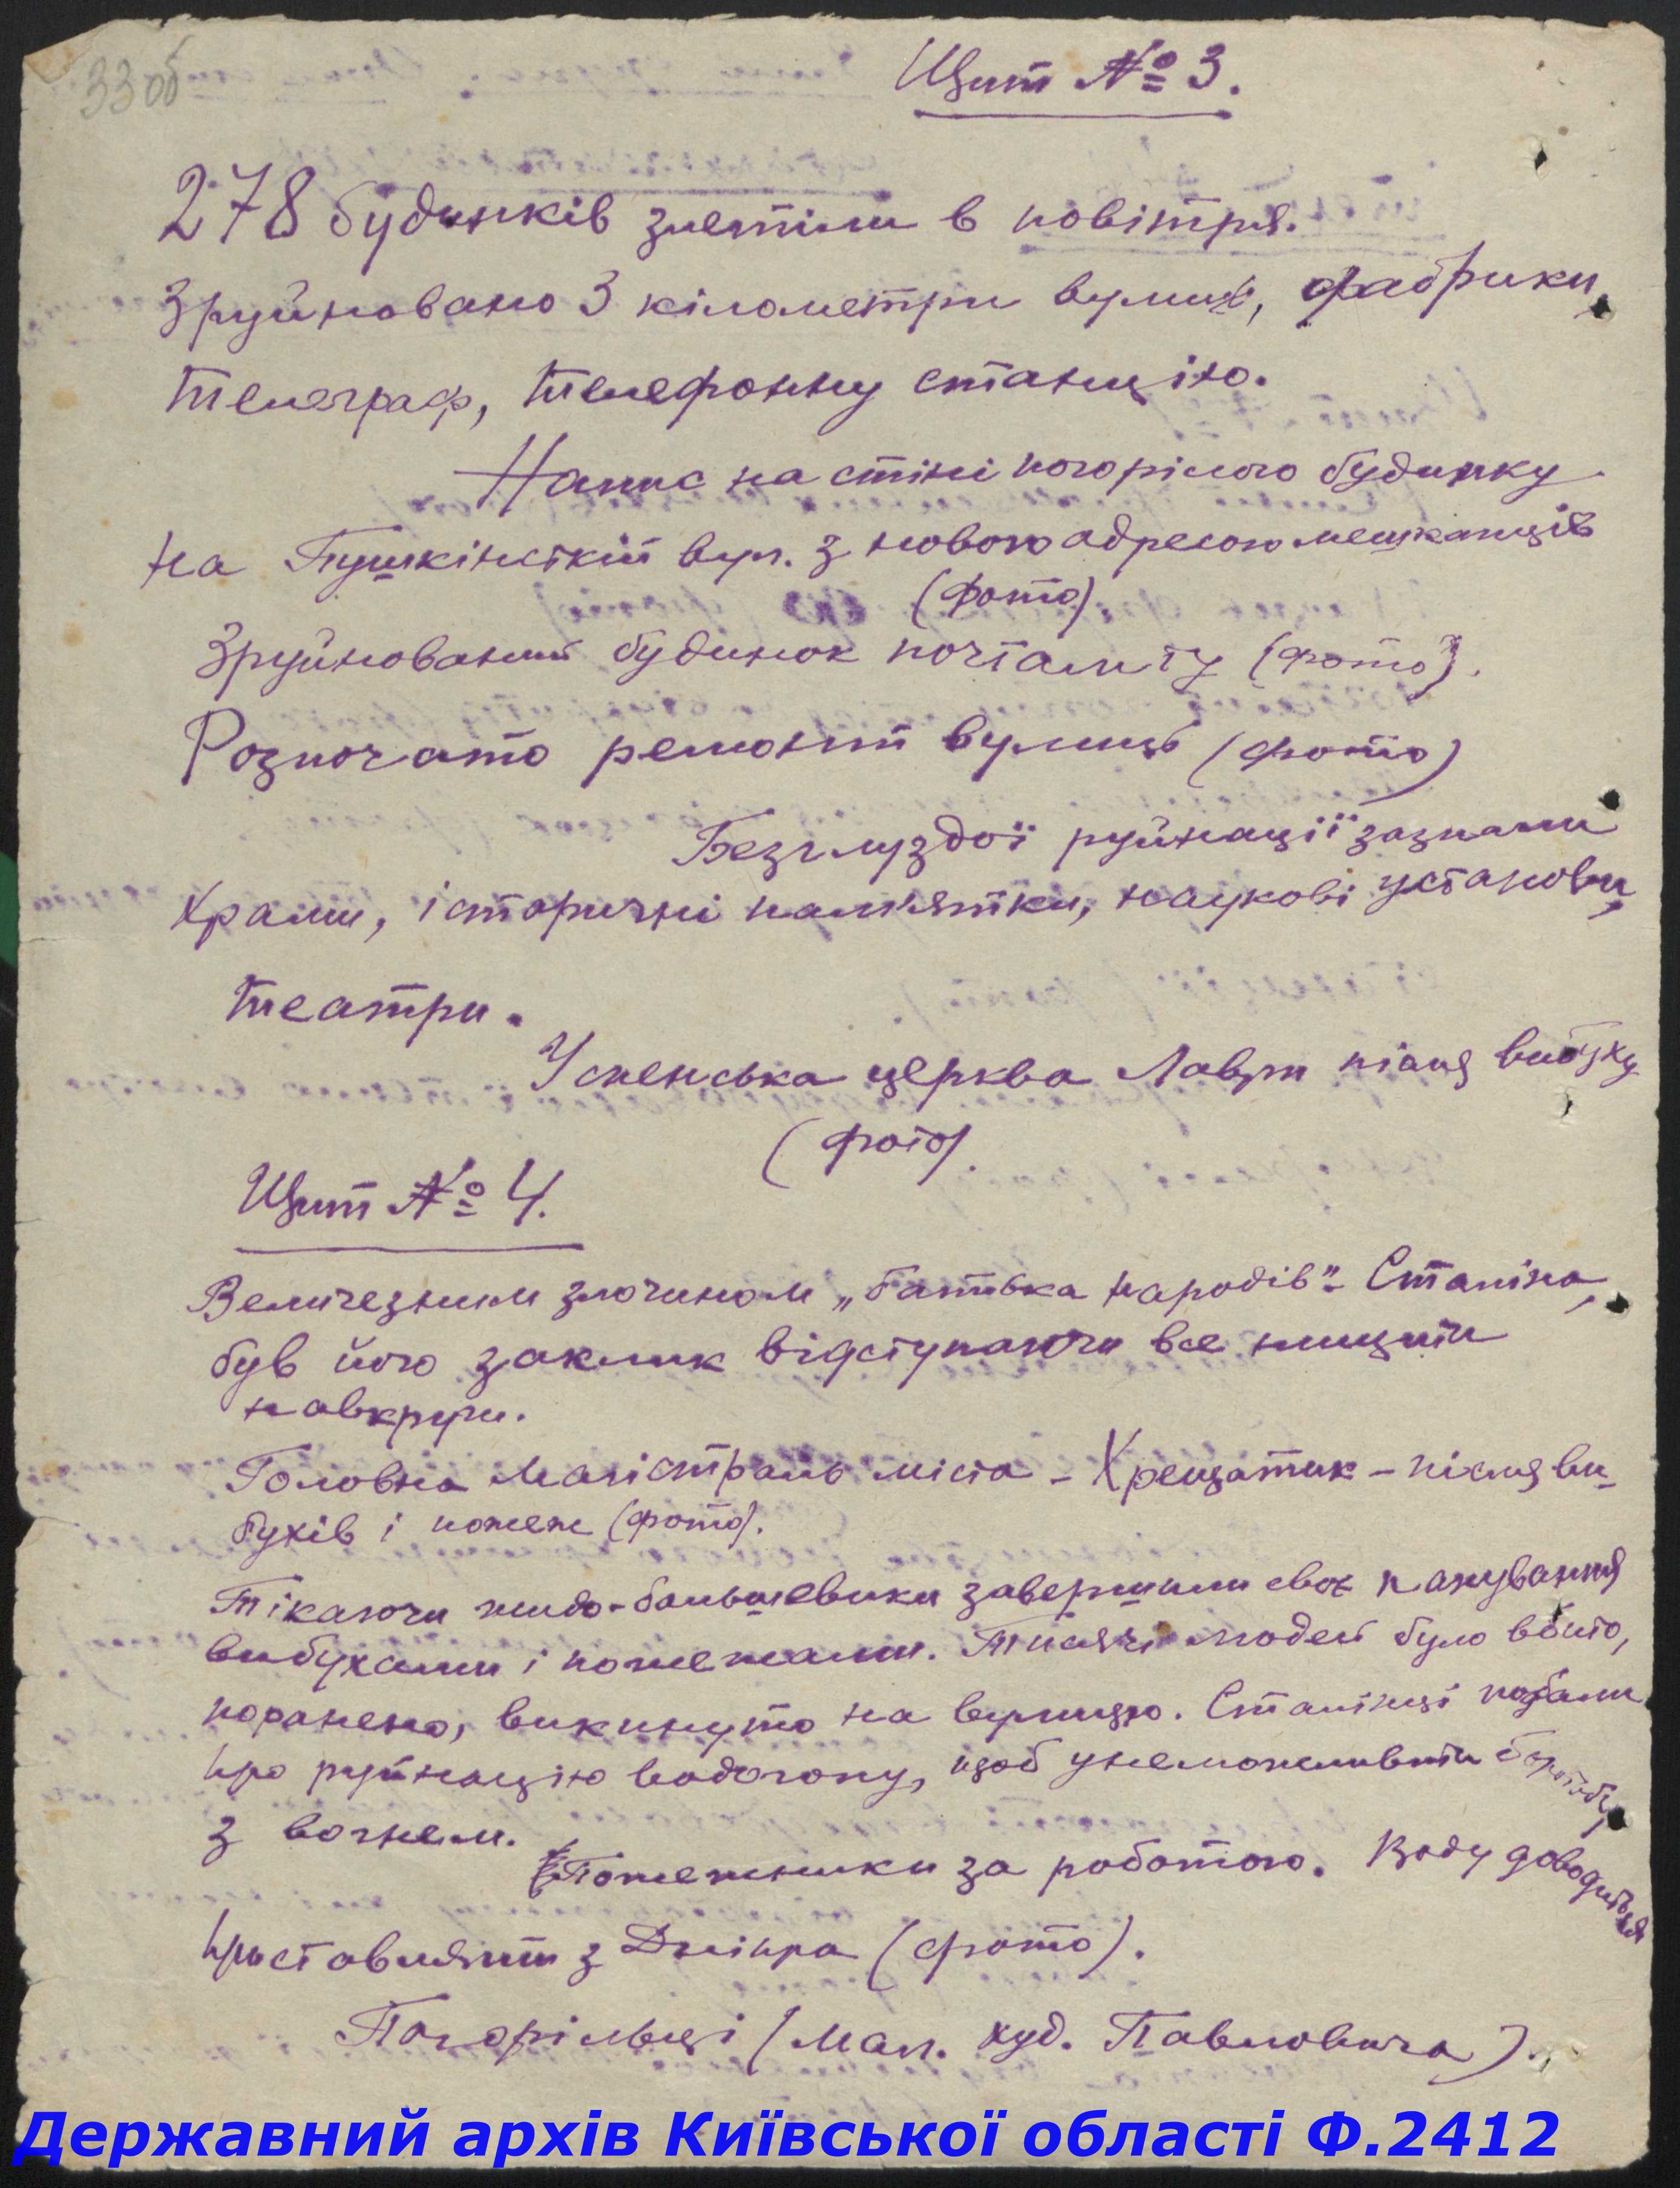 33об
Щит № 3.
278 будинків злетіли в повітря.
Зруйновано 3 кілометри вулиць, фабрики,
телеграф, телефонну станцію.
Напис на стіні погорілого будинку
на Пушкінській вул. з новою адресою мешканців
(фото).
Зруйнований будинок почтамту (фото).
Розпочато ремонт вулиць (фото)
Безглуздої руйнації зазнали
храми, історичні пам'ятки, наукові установи,
театри.
Успенська церква Лаври після вибуху
(фото).
Щит № 4.
Величезним злочином „батька народів" - Сталіна,
був його заклик відступаючи все нищити
навкруги.
Головна магістраль міста - Хрещатик - після ви-
бухів і пожеж (фото).
Тікаючи жидо-большевики завершили своє панування
вибухами і пожежами. Тисячі людей було вбито,
поранено, викинуто на вулицю. Сталінці подбали
про руйнацію водогону, щоб унеможливити боротьбу
з вогнем.
Пожежники за роботою. Воду доводиться
приставляти з Дніпра (фото).
Погорільці (мал. худ. Павловича).
Державний архів Київської області Ф.2412